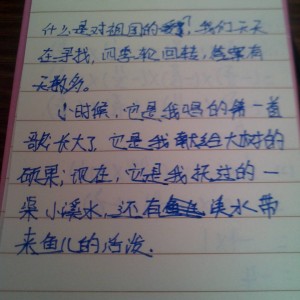 什么是对祖国的爱？我们天天
在寻找，四季轮回转，答案有
千般多。
小时候，它是我唱的第一首
歌；长大了，它是我献给大树的
硕果；现在，它是我抚过的一
渠小溪水，还有溪水带
来鱼儿的活泼。